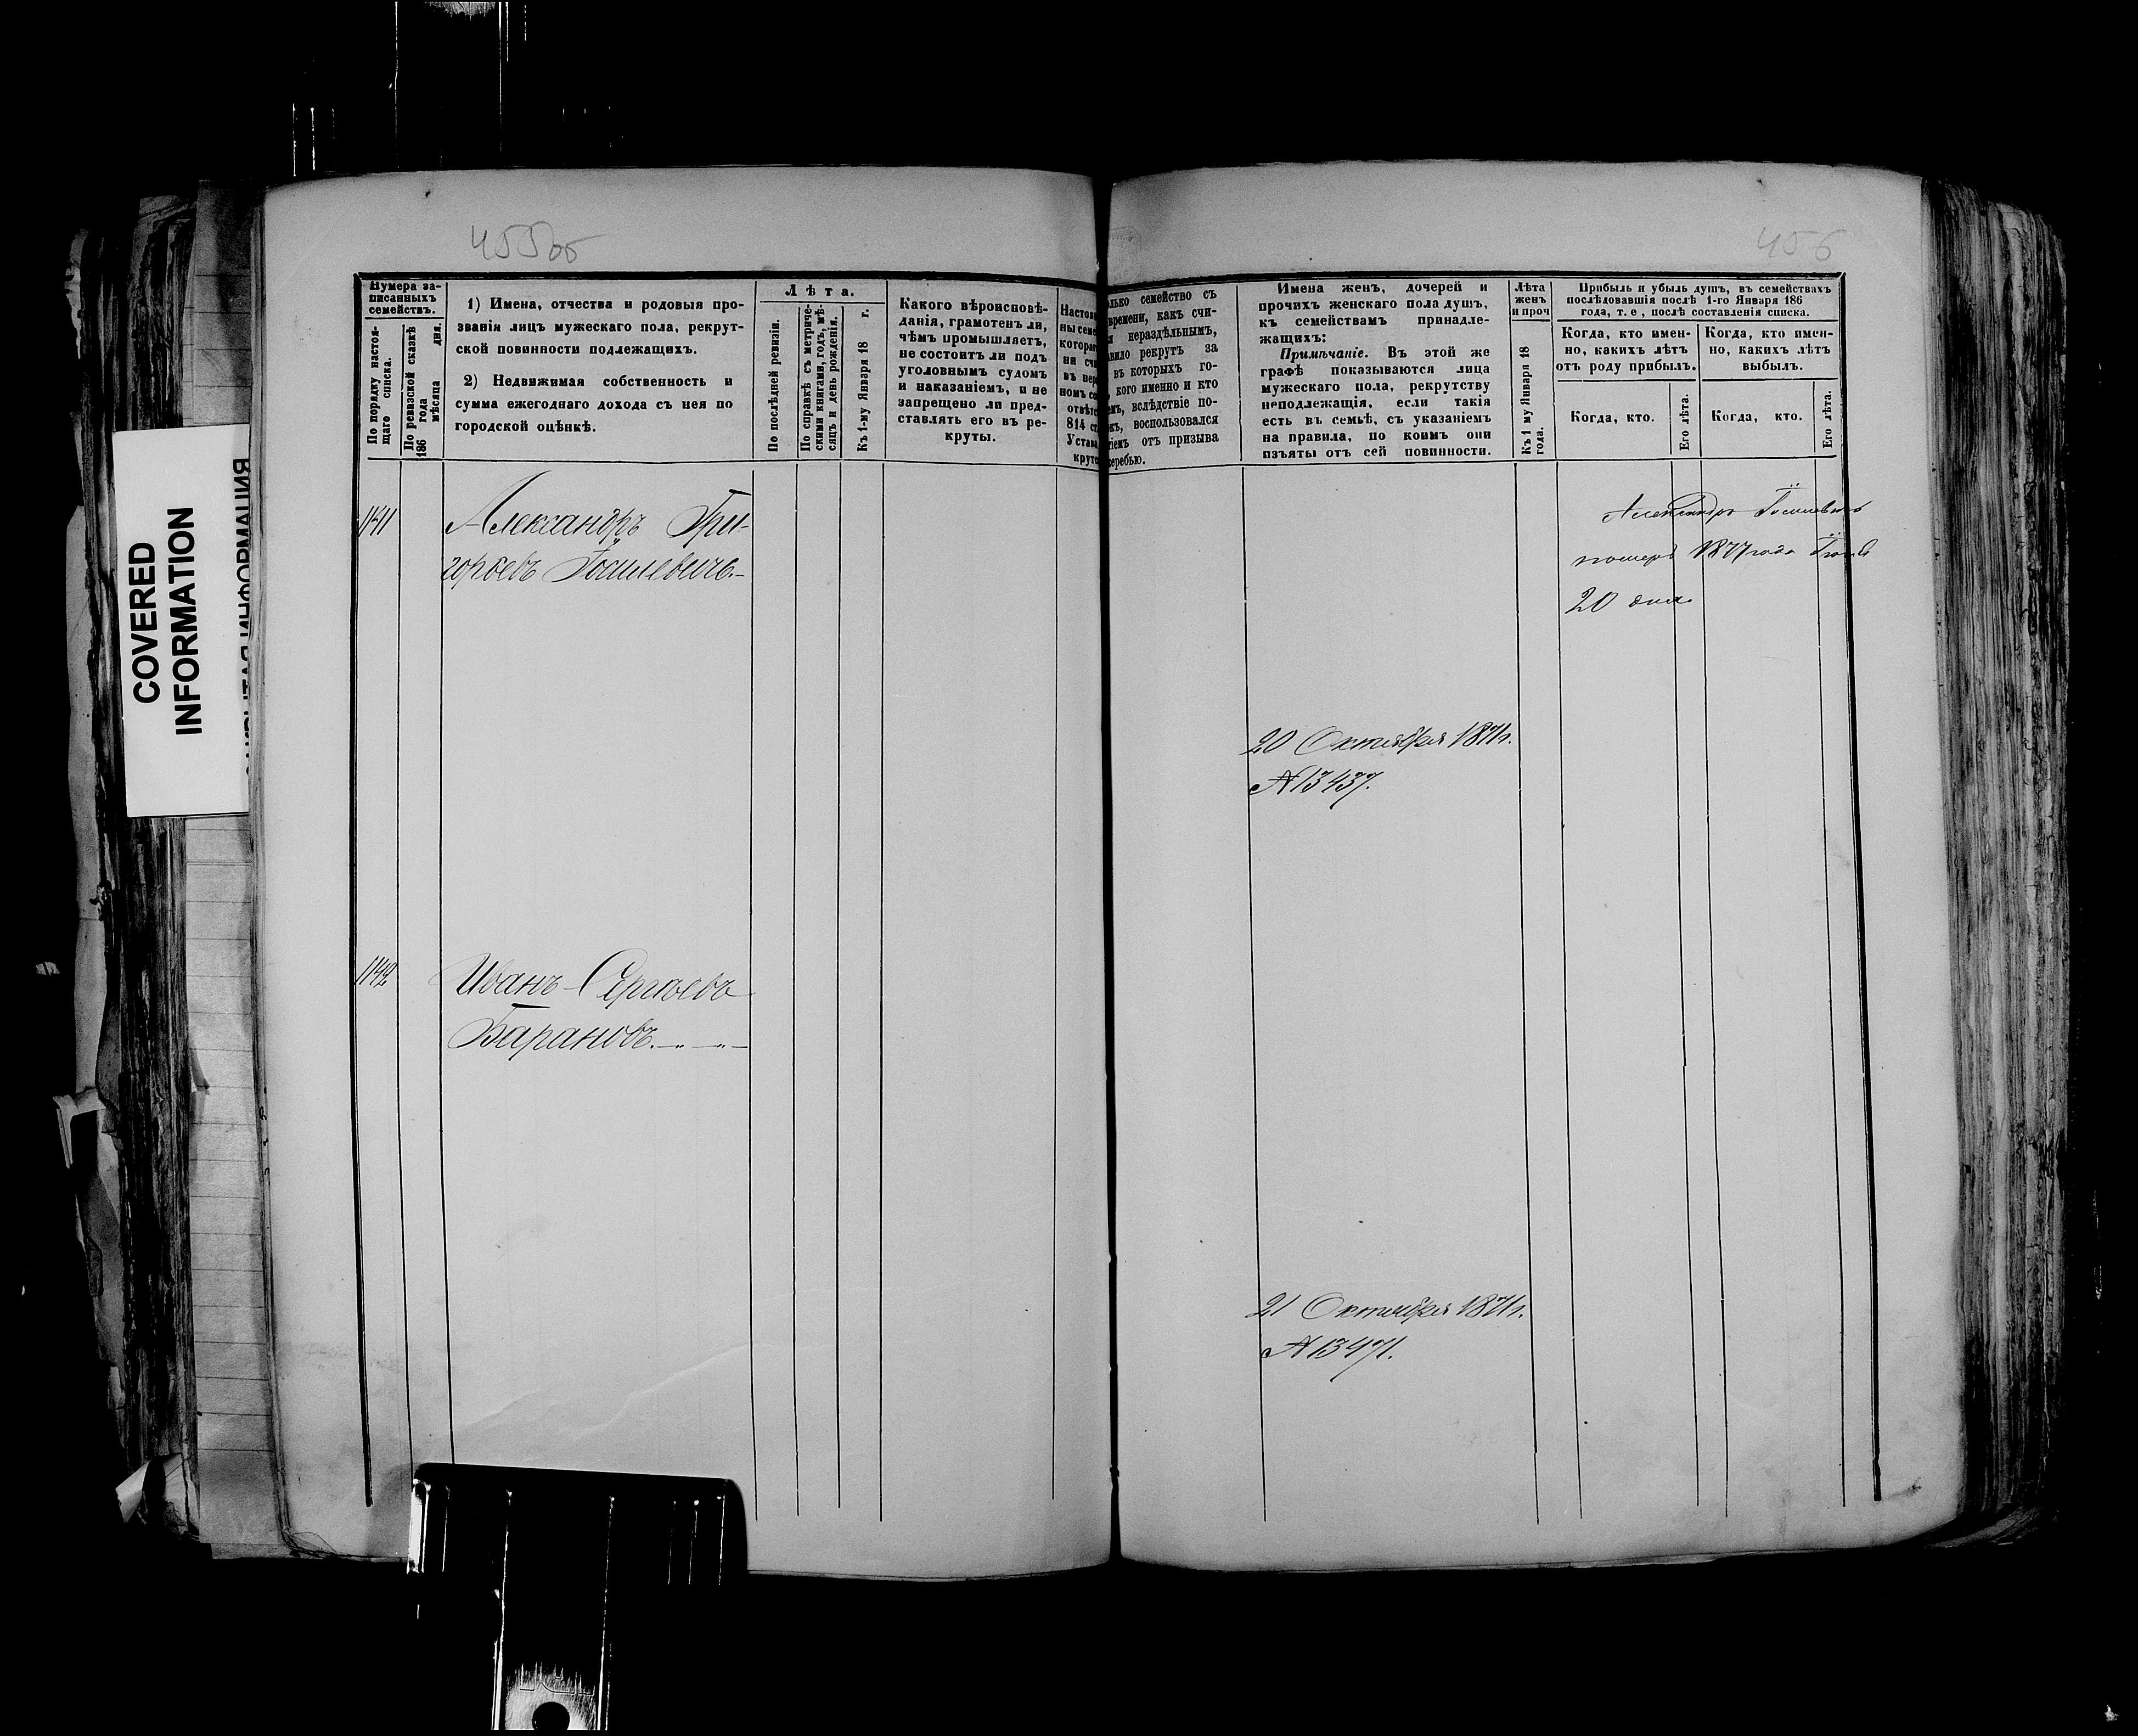 455об
456
COVERED
INFORMATION
Нумера за-
писанныхъ
семействъ.
По порядку настоя-
щаго списка.
По ревизской сказкѣ
186 года
мѣсяца дня.
1) Имена, отчества и родовыя про-
званія лицъ мужескаго пола, рекрут-
ской повинности подлежащихъ.
2) Недвижимая собственность и
сумма ежегоднаго дохода съ нея по
городской оцѣнкѣ.
Лѣта.
По послѣдней ревизіи.
По справкѣ съ метриче-
скими книгами, годъ, мѣ-
сяцъ и день рожденія.
Къ 1-му Января 18 г.
Какого вѣроисповѣ-
данія, грамотенъ ли,
чѣмъ промышляетъ,
не состоитъ ли подъ
уголовнымъ судомъ
и наказаніемъ, и не
запрещено ли пред-
ставлять его въ ре-
круты.
Настоя
ны семе
котораг
ни счи
въ нер
номъ со
отвѣтс
814 ст.
Устава
круте
олько семейство съ
времени, какъ счи-
я нераздѣльнымъ,
авило рекрутъ за
въ которыхъ го-
кого именно и кто
емъ, вслѣдствіе по-
окъ, воспользовался
тіемъ отъ призыва
жеребью.
Имена женъ, дочерей и
прочихъ женскаго пола душъ,
къ семействамъ принадле-
жащихъ:
Примѣчаніе. Въ этой же
графѣ показываются лица
мужескаго пола, рекрутству
неподлежащія, если такія
есть въ семьѣ, съ указаніемъ
на правила, по коимъ они
изъяты отъ сей повинности.
Лѣта
женъ
и проч
Къ 1 му Января 18
года.
Прибыль и убыль душъ, въ семействахъ
послѣдовавшія послѣ 1-го Января 186
года, т. е, послѣ составленія списка.
Когда, кто имен-
но, какихъ лѣтъ
отъ роду прибылъ.
Когда, кто имен-
но, какихъ лѣтъ
выбылъ.
Когда, кто.
Его лѣта.
Когда, кто.
Его лѣта.
1141
Александръ Гри-
горьевъ
Александръ
померъ 1877 года
20 дня
20 Октября 1871г.
№ 13437.
1142
Иванъ Сергѣевъ
Барановъ.
21 Октября 1871г.
№ 13471.